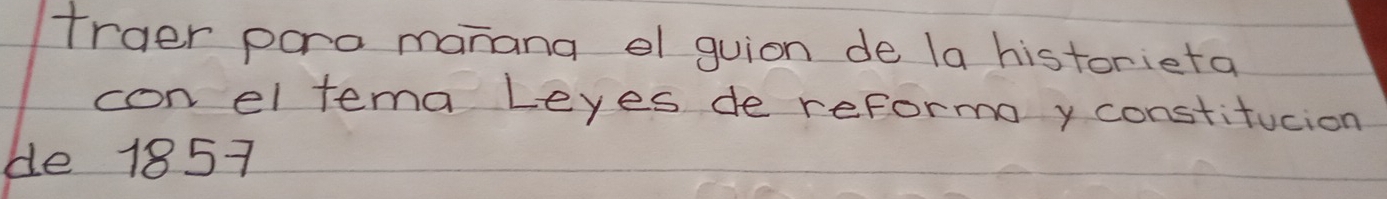 traer para mañana el guion de la historieta
con el tema Leyes de reforma y constitucion
de 1857